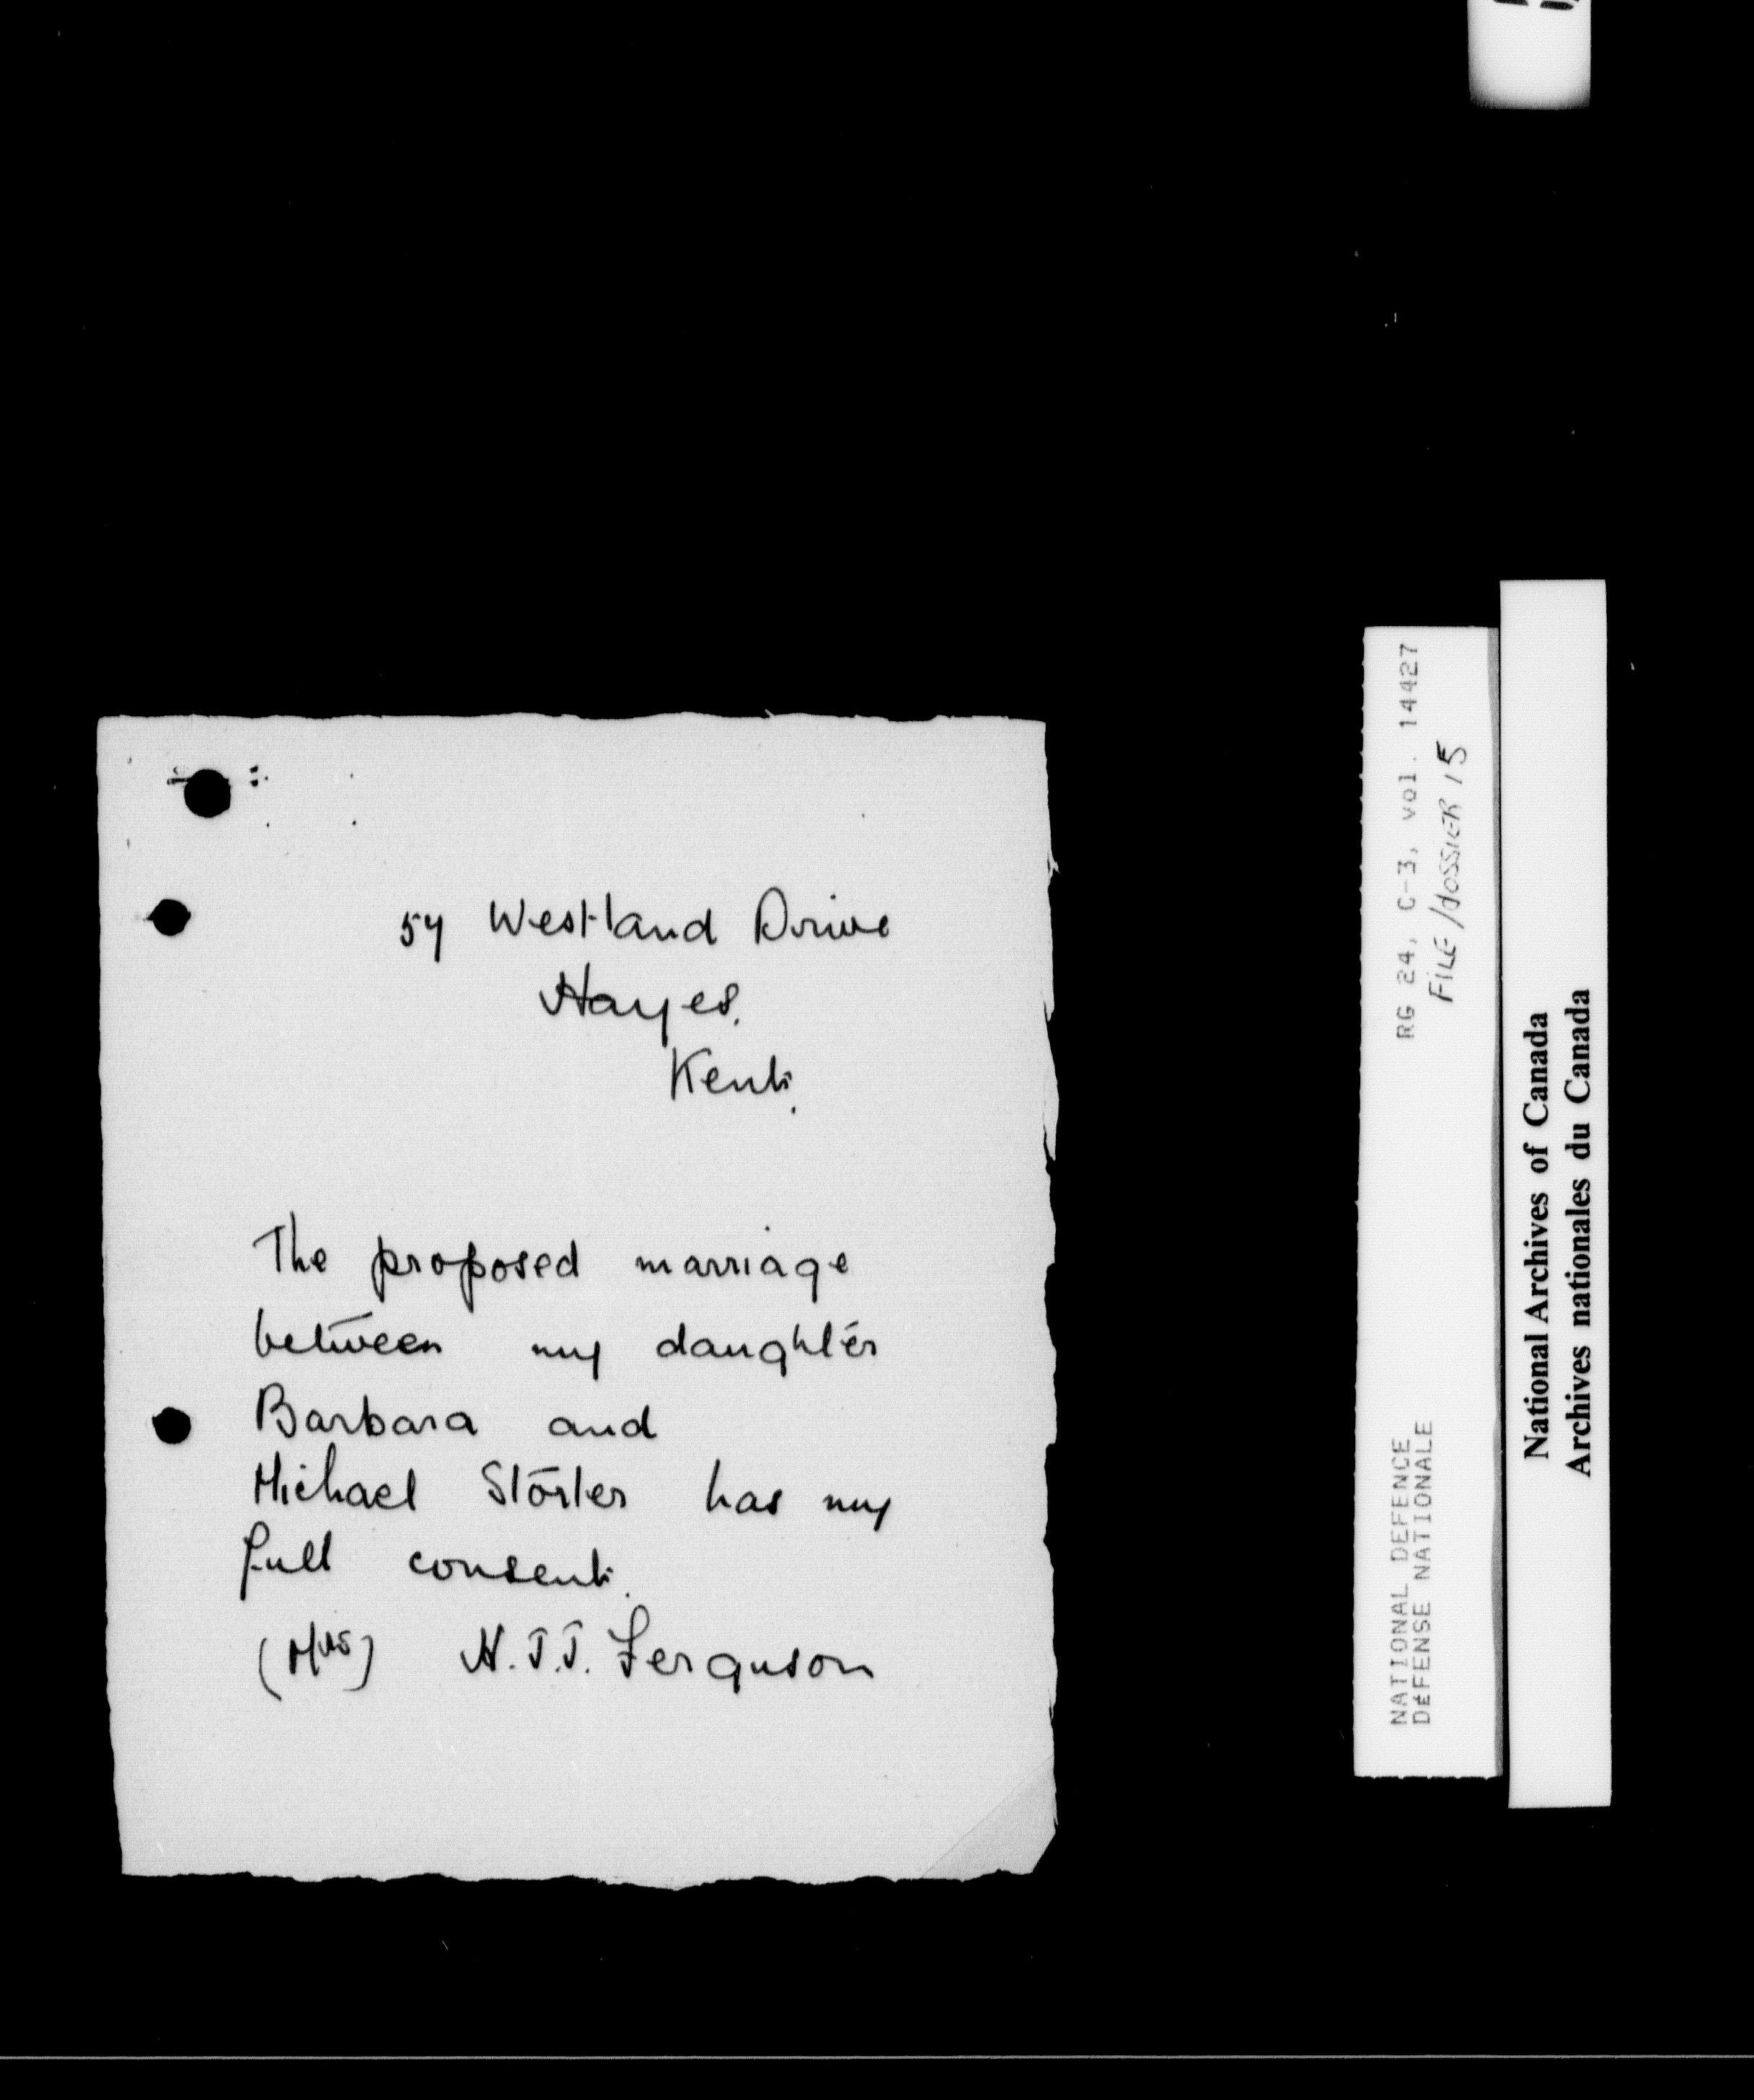 54 Westland Drive
Hayes.
Kent.
The proposed marriage
between my daughter
Barbara and
Michael Storter has my
full consent.
(Mrs) H.J.J. Ferguson
RG 24, C-3, vol. 14427
FILE/dossier 15
NATIONAL DEFENCE
DéFENSE NATIONALE
National Archives of Canada
Archives nationales du Canada